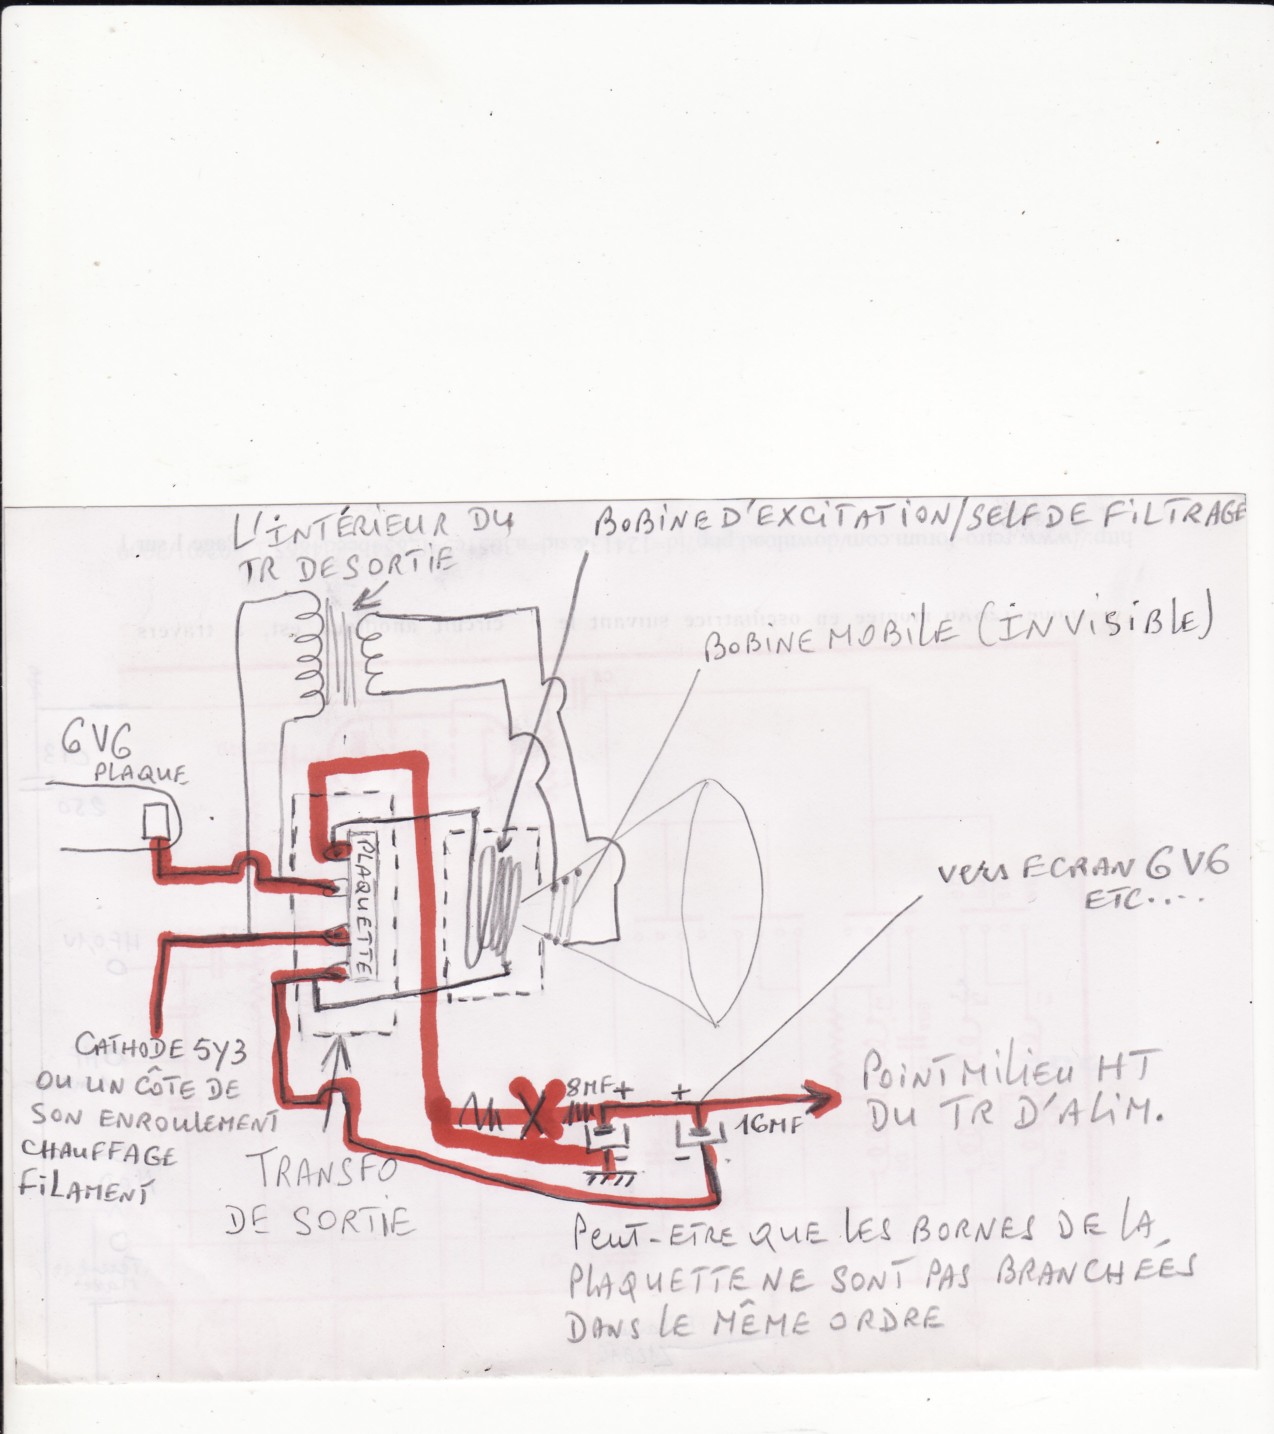 L'INTÉRIEUR DU
TR DE SORTIE
BOBINE D'EXCITATION/SELF DE FILTRAGE
BOBINE MOBILE (INVISIBLE)
6V6
PLAQUE
PLAQUETTE
VERS ECRAN 6V6
ETC....
CATHODE 5Y3
OU UN CÔTE DE
SON ENROULEMENT
CHAUFFAGE
FILAMENT
TRANSFO
DE SORTIE
8MF +
+
16MF
-
-
POINT MILIEU HT
DU TR D'ALIM.
PEUT-ETRE QUE LES BORNES DE LA
PLAQUETTE NE SONT PAS BRANCHÉES
DANS LE MÊME ORDRE